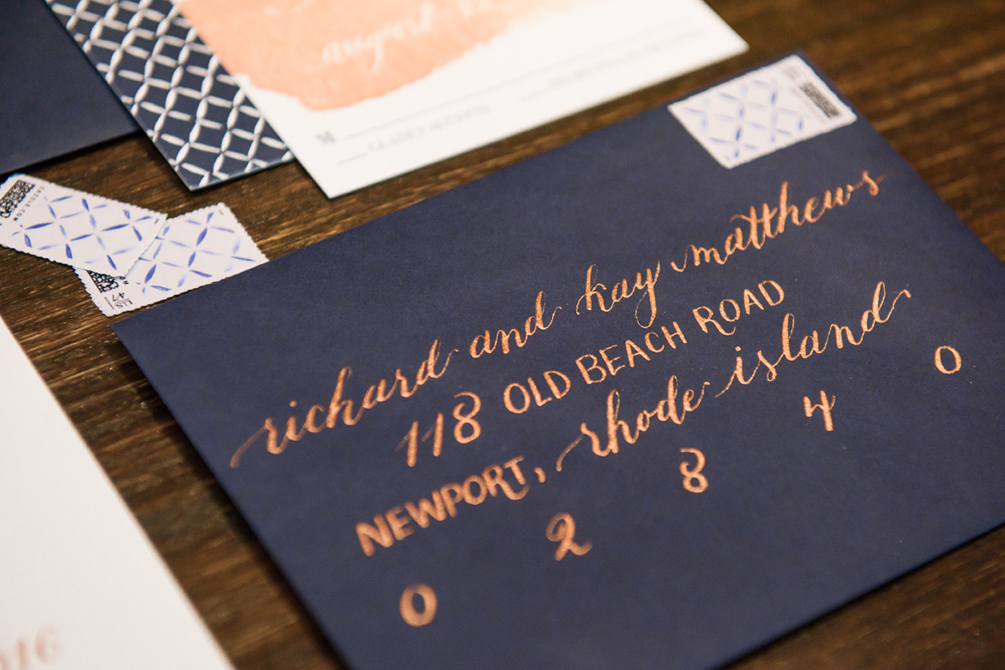 august
richard and kay matthews
118 OLD BEACH ROAD
NEWPORT, rhode island
0 2 8 4 0
US
47